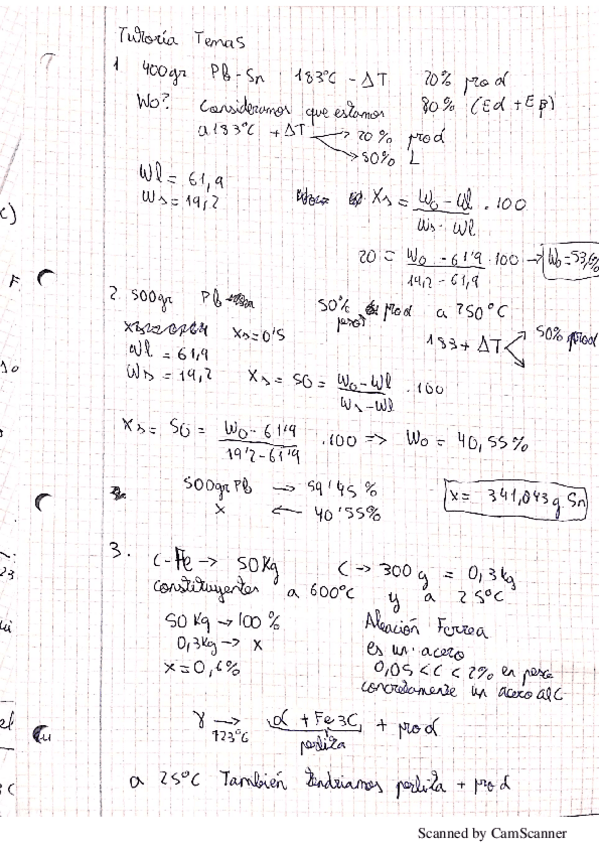 Tutoría Temas
1 400gr Pb-Sn 183ºC - ΔT 20% pro α
Wo? Consideramos que estamos 80% (Eα + Eβ)
a 183ºC + ΔT → 20% pro α
→ 80% L
Wl = 61,9
Ws = 19,2
Xs = Wo - Wl / Ws - Wl . 100
20 = Wo - 61'9 / 19,2 - 61,9 . 100 → Wo = 53,
2. 500gr Pb 50% pro α a 250ºC
Xs = 0'5
183 + ΔT → 50% pro α
Wl = 61,9
Ws = 19,2 Xs = 50 = Wo - Wl / Ws - Wl . 100
Xs = 50 = Wo - 61'9 / 19'2 - 61'9 . 100 => Wo = 40,55%
500gr Pb → 59'45 %
x ← 40'55%
x = 341,043 g Sn
3. C-Fe → 50Kg C → 300 g = 0,3kg
constituyentes a 600ºC y a 25ºC
50 Kg → 100 %
0,3Kg → x
x = 0,6%
Aleación Ferrea
es un acero
0,05 < C < 2% en peso
concretamente un acero al C
γ → 723ºC α + Fe3C + pro α
perlita
a 25ºC También tendriamos perlita + pro α
Scanned by CamScanner